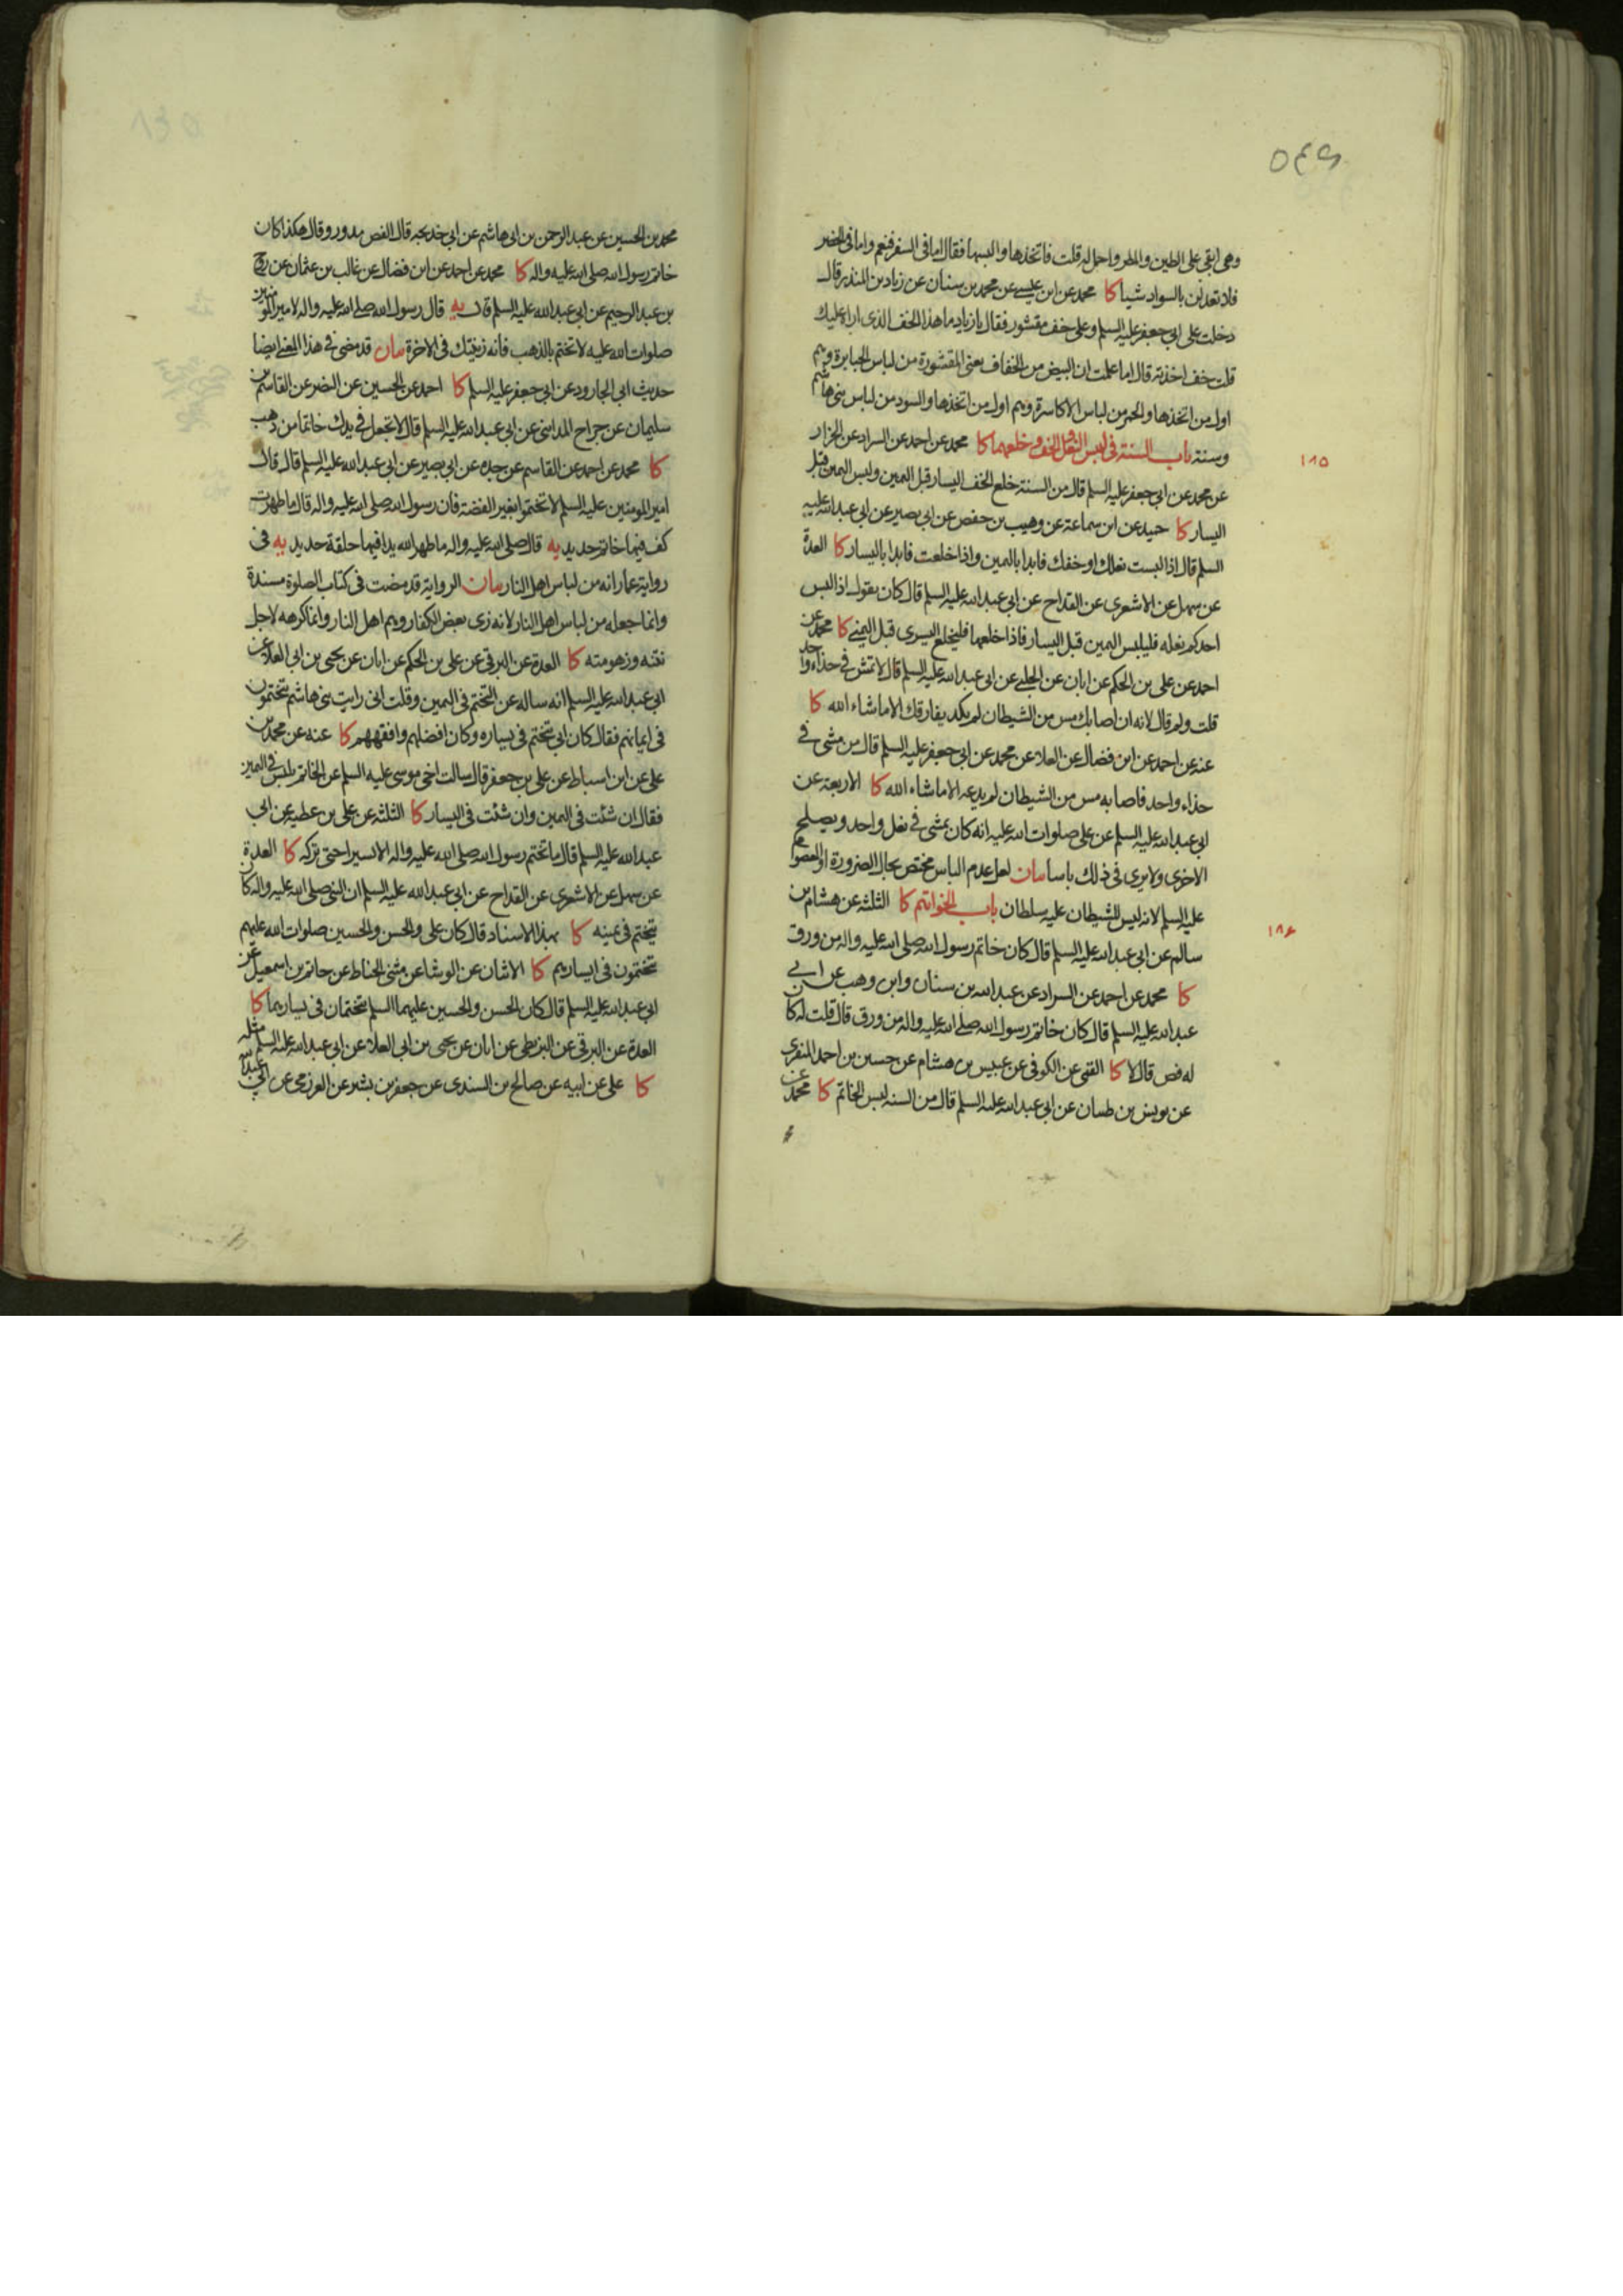 ٥٤٩
وهي ابقى على الطين والمطر واحمل له قلت فاتخذها والبسها فقال اما في السفر فنعم واما في الحضر
فلا تعدلن بالسواد شيئا كا محمد عن ابن عيسى عن محمد بن سنان عن زياد بن المنذر قال
دخلت على ابي جعفر عليه السلم وعلى خف مقشور فقال يا زياد ما هذا الخف الذى اراه عليك
قلت خف اخذته قال اما علمت ان البيض من الخفاف يعنى المقشورة من لباس الجبابرة وهم
اول من اتخذها والحمر من لباس الاكاسرة وهم اول من اتخذها والسود من لباس بنى هاشم
وسنة باب السنة في لبس النعل والخف وخلعهما كا محمد عن احمد عن السراد عن الخزاز
١٨٥
عن محمد عن ابي جعفر عليه السلم قال من السنة خلع الخف اليسار قبل اليمين ولبس اليمين قبل
اليسار كا حميد عن ابن سماعة عن وهيب بن حفص عن ابي بصير عن ابي عبد الله عليه
السلم قال اذا لبست نعلك او خفك فابدا باليمين واذا خلعت فابدا باليسار كا العدة
عن سهل عن الاشعرى عن القداح عن ابي عبد الله عليه السلم قال كان يقول اذا لبس
احدكم نعله فليلبس اليمين قبل اليسار فاذا خلعها فليخلع اليسرى قبل اليمنى كا محمد عن
احمد عن على بن الحكم عن ابان عن الحلبي عن ابي عبد الله عليه السلم قال لا تمش في حذاء واحد
قلت ولم قال لانه ان اصابك مس من الشيطان لم يكد يفارقك الا ما شاء الله كا
عنه عن احمد عن ابن فضال عن العلاء عن محمد عن ابي جعفر عليه السلم قال من مشى في
حذاء واحد فاصابه مس من الشيطان لم يدعه الا ما شاء الله كا الاربعة عن
ابي عبد الله عليه السلم عن على صلوات الله عليه انه كان يمشى في نعل واحد ويصلح
الاخرى ولا يرى في ذلك باسا بيان لعل عدم الباس مختص بحال الضرورة او المعصوم
عليه السلم لانه ليس للشيطان عليه سلطان باب الخواتيم كا الثلثة عن هشام بن
١٨٦
سالم عن ابي عبد الله عليه السلم قال كان خاتم رسول الله صلى الله عليه واله من ورق
كا محمد عن احمد عن السراد عن عبد الله بن سنان وابن وهب عن ابي
عبد الله عليه السلم قال كان خاتم رسول الله صلى الله عليه واله من ورق قال قلت له كان
له فص قال لا كا القمي عن الكوفي عن عبيس بن هشام عن حسين بن احمد المنقرى
عن يونس بن ظبيان عن ابي عبد الله عليه السلم قال من السنة لبس الخاتم كا محمد عن
محمد بن الحسين عن عبد الرحمن بن ابي هاشم عن ابي خديجه قال الفص مدور وقال هكذا كان
خاتم رسول الله صلى الله عليه واله كا محمد عن احمد عن ابن فضال عن غالب بن عثمان عن روح
بن عبد الرحيم عن ابي عبد الله عليه السلم قال يه قال رسول الله صلى الله عليه واله لامير المؤمنين
صلوات الله عليه لا تختم بالذهب فانه زينتك في الاخرة بيان قد مضى في هذا المعنى ايضا
حديث ابي الجارود عن ابي جعفر عليه السلم كا احمد عن الحسين عن النضر عن القاسم بن
سليمان عن جراح المدايني عن ابي عبد الله عليه السلم قال لا تجعل في يدك خاتما من ذهب
كا محمد عن احمد عن القاسم عن جده عن ابي بصير عن ابي عبد الله عليه السلم قال قال
امير المومنين عليه السلم لا تختموا بغير الفضة فان رسول الله صلى الله عليه واله قال ما طهرت
كف فيها خاتم حديد يه قال صلى الله عليه واله ما طهر الله يدا فيها حلقة حديد يه في
رواية عمار انه من لباس اهل النار بيان الرواية قد مضت في كتاب الصلوة مسندة
وانما جعله من لباس اهل النار لانه زى بعض الكفار وهم اهل النار وانما كرهه لاجل
نتنه وزهومته كا العدة عن البرقي عن على بن الحكم عن ابان عن يحيى بن ابي العلاء عن
ابي عبد الله عليه السلم انه ساله عن التختم في اليمين وقلت انى رايت بنى هاشم يتختمون
في ايمانهم فقال كان ابي يتختم في يساره وكان افضلهم وافقههم كا عنه عن محمد بن
على عن ابن اسباط عن على بن جعفر قال سالت اخي موسى عليه السلم عن الخاتم يلبس في اليمين
فقال ان شئت في اليمين وان شئت في اليسار كا الثلثة عن على بن عطيه عن ابي
عبد الله عليه السلم قال ما تختم رسول الله صلى الله عليه واله الا يسيرا حتى تركه كا العدة
عن سهل عن الاشعرى عن القداح عن ابي عبد الله عليه السلم ان النبي صلى الله عليه واله كان
يتختم في يمينه كا بهذا الاسناد قال كان على والحسن والحسين صلوات الله عليهم
يتختمون في ايسارهم كا الاثنان عن الوشا عن مثنى الحناط عن حاتم بن اسمعيل عن
ابي عبد الله عليه السلم قال كان الحسن والحسين عليهما السلم يتختمان في يسارهما كا
العدة عن البرقي عن البزنطي عن ابان عن يحيى بن ابي العلاء عن ابي عبد الله عليه السلم مثله
كا على عن ابيه عن صالح بن السندى عن جعفر بن بشير عن العرزمى عن ابي عبد الله